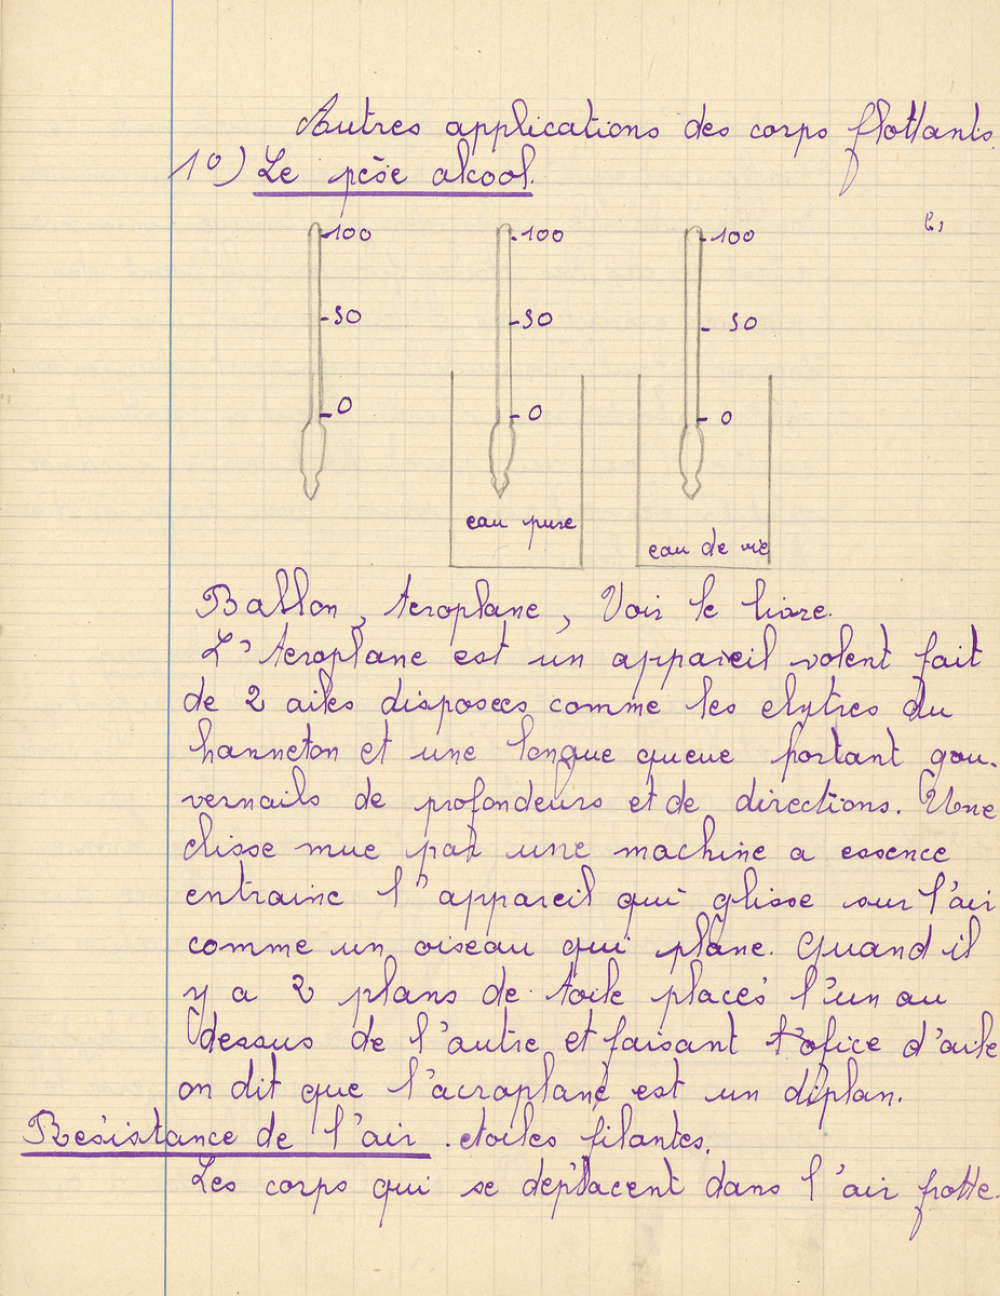 Autres applications des corps flottants.
10) Le pèse alcool.
100 100 100
50 50 50
0 0 0
eau pure
eau de vie
Ballon, Aeroplane, Voir le livre.
L'Aeroplane est un appareil volent fait
de 2 ailes disposees comme les elytres du
hanneton et une longue queue portant gou-
vernails de profondeurs et de directions. Une
clisse mue par une machine a essence
entraine l'appareil qui glisse sur l'air
comme un oiseau qui plane. Quand il
y a 2 plans de toile placés l'un au
dessus de l'autre et faisant l'ofice d'aile
on dit que l'aeroplane est un diplan.
Résistance de l'air. etoiles filantes.
Les corps qui se déplacent dans l'air frotte.